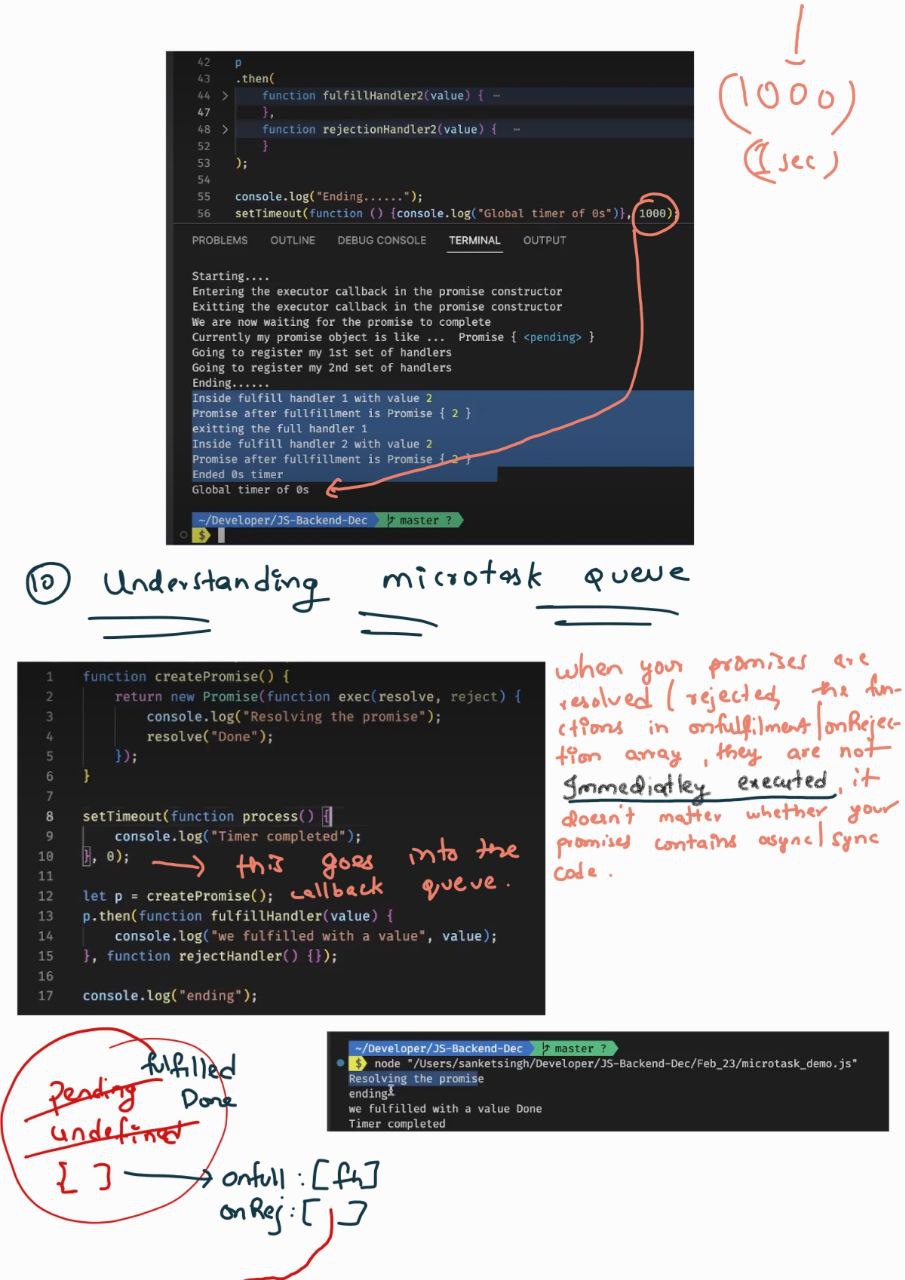 1000
(1 sec)
42 p
43 .then(
44 > function fulfillHandler2(value) { ⋯
47 },
48 > function rejectionHandler2(value) { ⋯
52 }
53 );
54
55 console.log("Ending......");
56 setTimeout(function () {console.log("Global timer of 0s")}, 1000);
PROBLEMS OUTLINE DEBUG CONSOLE TERMINAL OUTPUT
Starting....
Entering the executor callback in the promise constructor
Exitting the executor callback in the promise constructor
We are now waiting for the promise to complete
Currently my promise object is like ... Promise { <pending> }
Going to register my 1st set of handlers
Going to register my 2nd set of handlers
Ending......
Inside fulfill handler 1 with value 2
Promise after fullfillment is Promise { 2 }
exitting the full handler 1
Inside fulfill handler 2 with value 2
Promise after fullfillment is Promise { 2 }
Ended 0s timer
Global timer of 0s
~/Developer/JS-Backend-Dec master ?
$
10 Understanding microtask queue
1 function createPromise() {
2 return new Promise(function exec(resolve, reject) {
3 console.log("Resolving the promise");
4 resolve("Done");
5 });
6 }
7
8 setTimeout(function process() {
9 console.log("Timer completed");
10 }, 0);
11
12 let p = createPromise();
13 p.then(function fulfillHandler(value) {
14 console.log("we fulfilled with a value", value);
15 }, function rejectHandler() {});
16
17 console.log("ending");
this goes into the
callback queue.
when your promises are
resolved / rejected, the fun-
ctions in onfulfilment/onRejec-
tion array, they are not
Immediatley executed, it
doesn't matter whether your
promises contains async/sync
code.
~/Developer/JS-Backend-Dec master ?
$ node "/Users/sanketsingh/Developer/JS-Backend-Dec/Feb_23/microtask_demo.js"
Resolving the promise
ending
we fulfilled with a value Done
Timer completed
fulfilled
pending
Done
undefined
[ ] → onfull : [fh]
onRej : [ ]